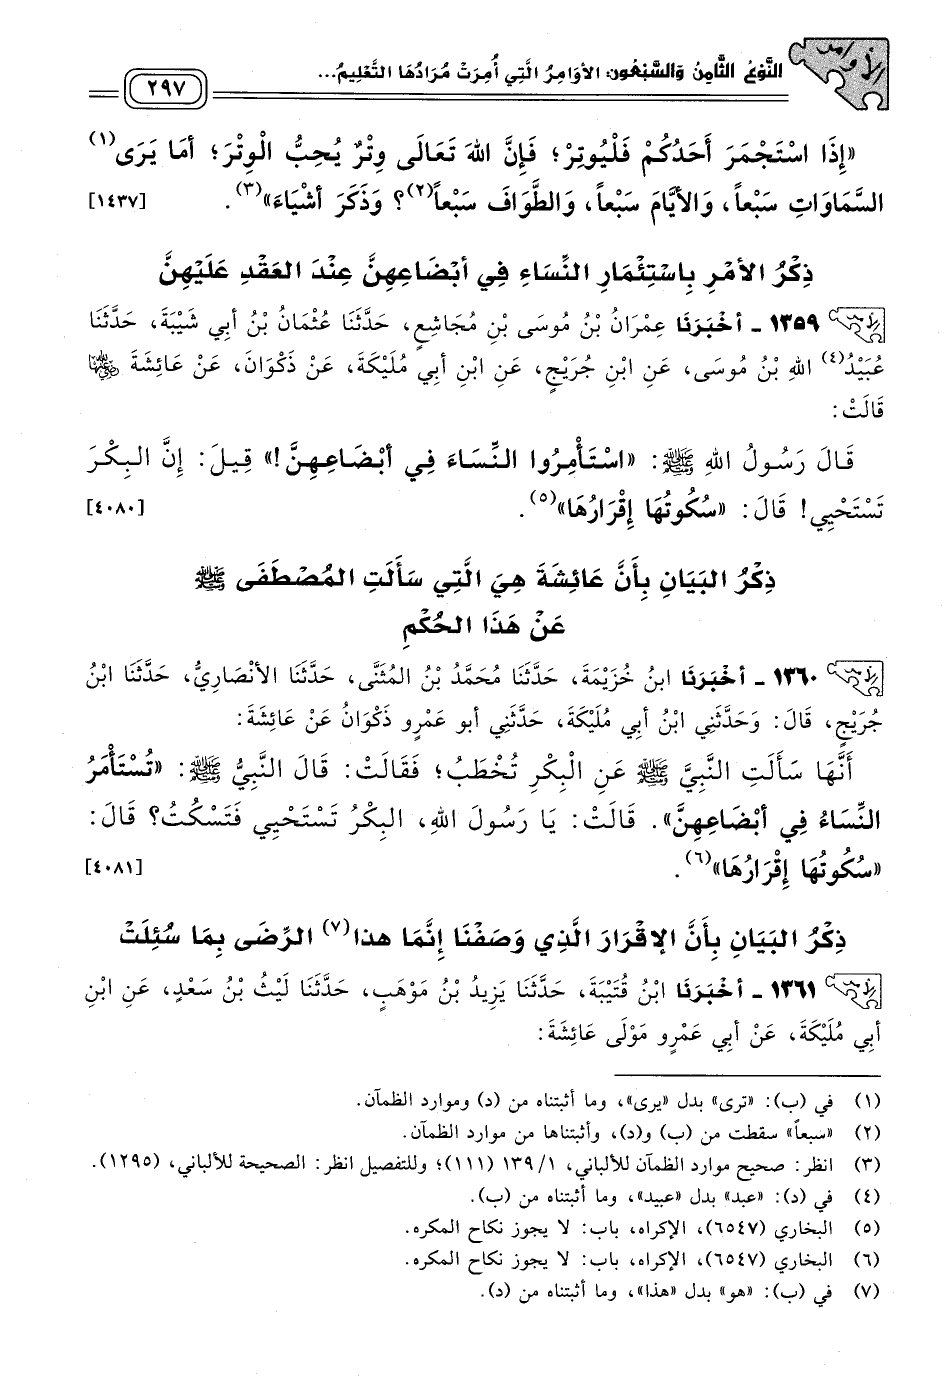 الأوامر
النَّوْعُ الثَّامِنُ وَالسَّبْعُون: الأوَامِرُ الَّتِي أُمِرَتْ مُرَادُهَا التَّعْلِيمُ...
٢٩٧
«إِذَا اسْتَجْمَرَ أَحَدُكُمْ فَلْيُوتِرْ؛ فَإِنَّ اللهَ تَعَالَى وِتْرٌ يُحِبُّ الْوِتْرَ؛ أمَا يَرَى(١)
السَّمَاوَاتِ سَبْعاً، وَالأيَّامَ سَبْعاً، وَالطَّوَافَ سَبْعاً(٢)؟ وَذَكَرَ أشْيَاءَ»(٣). [١٤٣٧]
ذِكْرُ الأمْرِ بِاسْتِئْمَارِ النِّسَاءِ فِي أبْضَاعِهِنَّ عِنْدَ العَقْدِ عَلَيْهِنَّ
١٣٥٩ - أخْبَرَنَا عِمْرَانُ بْنُ مُوسَى بْنِ مُجَاشِعٍ، حَدَّثَنَا عُثْمَانُ بْنُ أبِي شَيْبَةَ، حَدَّثَنَا
عُبَيْدُ(٤) اللهِ بْنُ مُوسَى، عَنِ ابْنِ جُرَيْجٍ، عَنِ ابْنِ أبِي مُلَيْكَةَ، عَنْ ذَكْوَانَ، عَنْ عَائِشَةَ رضي الله عنها
قَالَتْ:
قَالَ رَسُولُ اللهِ ﷺ: «اسْتَأْمِرُوا النِّسَاءَ فِي أبْضَاعِهِنَّ!» قِيلَ: إِنَّ البِكْرَ
تَسْتَحْيِي! قَالَ: «سُكُوتُهَا إِقْرَارُهَا»(٥). [٤٠٨٠]
ذِكْرُ البَيَانِ بِأَنَّ عَائِشَةَ هِيَ الَّتِي سَأَلَتِ المُصْطَفَى ﷺ
عَنْ هَذَا الحُكْمِ
١٣٦٠ - أخْبَرَنَا ابْنُ خُزَيْمَةَ، حَدَّثَنَا مُحَمَّدُ بْنُ المُثَنَّى، حَدَّثَنَا الأنْصَارِيُّ، حَدَّثَنَا ابْنُ
جُرَيْجٍ، قَالَ: وَحَدَّثَنِي ابْنُ أبِي مُلَيْكَةَ، حَدَّثَنِي أبو عَمْرٍو ذَكْوَانُ عَنْ عَائِشَةَ:
أَنَّهَا سَأَلَتِ النَّبِيَّ ﷺ عَنِ الْبِكْرِ تُخْطَبُ؛ فَقَالَتْ: قَالَ النَّبِيُّ ﷺ: «تُسْتَأْمَرُ
النِّسَاءُ فِي أبْضَاعِهِنَّ». قَالَتْ: يَا رَسُولَ اللهِ، البِكْرُ تَسْتَحْيِي فَتَسْكُتُ؟ قَالَ:
«سُكُوتُهَا إِقْرَارُهَا»(٦). [٤٠٨١]
ذِكْرُ البَيَانِ بِأَنَّ الإقْرَارَ الَّذِي وَصَفْنَا إِنَّمَا هذا(٧) الرِّضَى بِمَا سُئِلَتْ
١٣٦١ - أخْبَرَنَا ابْنُ قُتَيْبَةَ، حَدَّثَنَا يَزِيدُ بْنُ مَوْهَبٍ، حَدَّثَنَا لَيْثُ بْنُ سَعْدٍ، عَنِ ابْنِ
أبِي مُلَيْكَةَ، عَنْ أبِي عَمْرٍو مَوْلَى عَائِشَةَ:
(١) في (ب): «ترى» بدل «يرى»، وما أثبتناه من (د) وموارد الظمآن.
(٢) «سبعاً» سقطت من (ب) و(د)، وأثبتناها من موارد الظمآن.
(٣) انظر: صحيح موارد الظمآن للألباني، ١٣٩/١ (١١١)؛ وللتفصيل انظر: الصحيحة للألباني، (١٢٩٥).
(٤) في (د): «عبد» بدل «عبيد»، وما أثبتناه من (ب).
(٥) البخاري (٦٥٤٧)، الإكراه، باب: لا يجوز نكاح المكره.
(٦) البخاري (٦٥٤٧)، الإكراه، باب: لا يجوز نكاح المكره.
(٧) في (ب): «هو» بدل «هذا»، وما أثبتناه من (د).